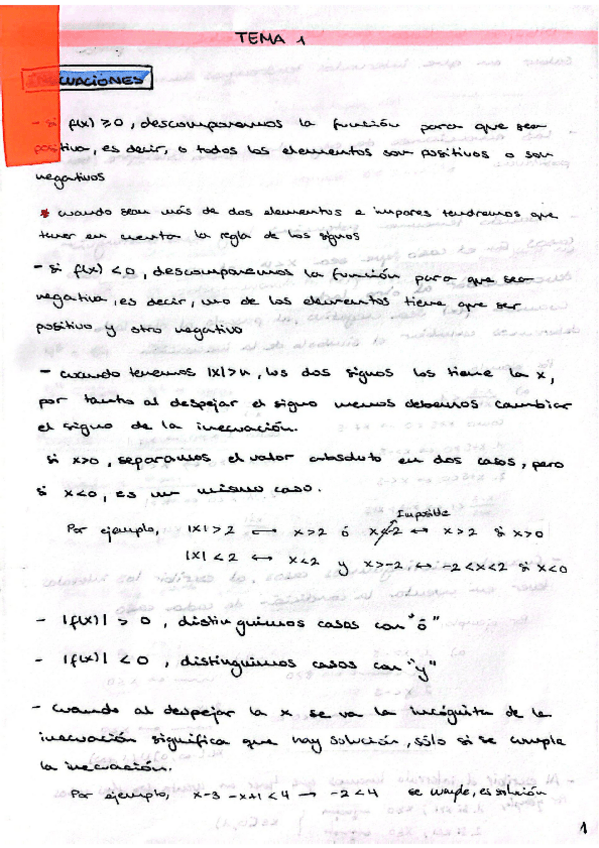 TEMA 1
INECUACIONES
- si f(x) ≥ 0, descomponemos la función para que sea
positiva, es decir, o todos los elementos son positivos o son
negativos
* cuando sean más de dos elementos e impares tendremos que
tener en cuenta la regla de los signos
- si f(x) < 0, descomponemos la función para que sea
negativa, es decir, uno de los elementos tiene que ser
positivo y otro negativo
- cuando tenemos |x| > n, los dos signos los tiene la x,
por tanto al despejar el signo menos debemos cambiar
el signo de la inecuación.
si x>0, separamos el valor absoluto en dos casos, pero
si x<0, es un mismo caso.
Imposible
Por ejemplo, |x| > 2 ⟷ x > 2 ó x < -2 ↔ x > 2 si x > 0
|x| < 2 ↔ x < 2 y x > -2 ↔ -2 < x < 2 si x < 0
- |f(x)| > 0, distinguimos casos con "ó"
- |f(x)| < 0, distinguimos casos con "y"
- cuando al despejar la x se va la incógnita de la
inecuación significa que hay solución, sólo si se cumple
la inecuación.
Por ejemplo, x-3 -x+1 < 4 → -2 < 4 se cumple, es solución
1